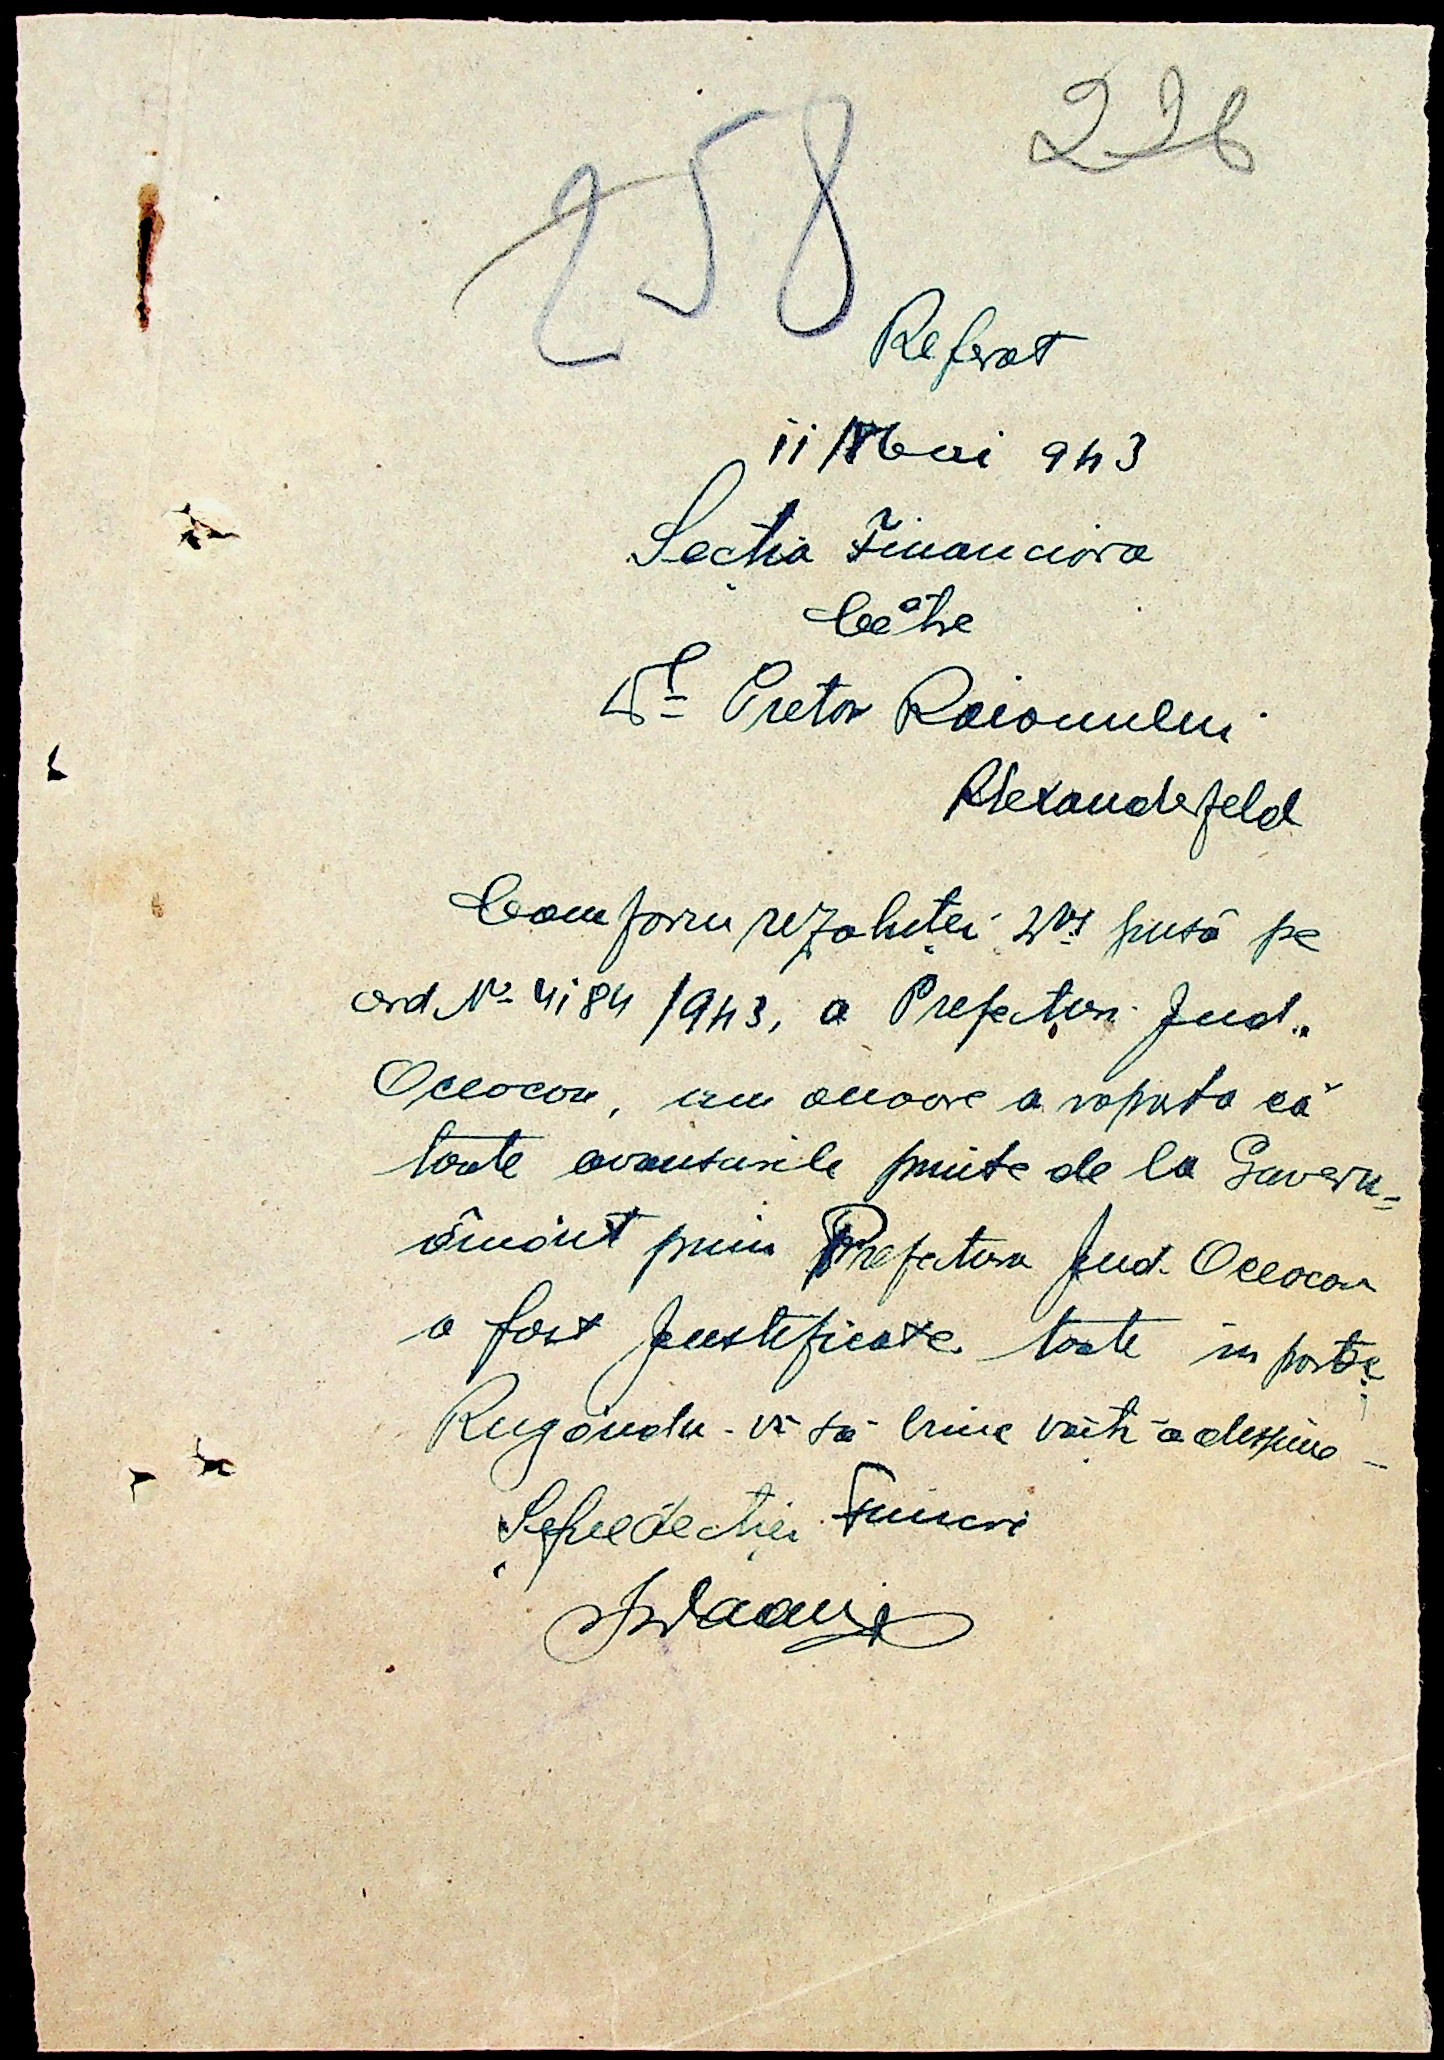 226
258
Referat
11 Mai 943
Secția Financiara
Către
Dl Pretor Raionului
Alexanderfeld
Comform rezoluței Dvs pusă pe
ord No 4184/943, a Prefecturi Jud.
Oceacov, am onoare a raporta că
toate avansurile primite de la Guvern-
ământ prin Prefectura Jud. Oceacov
a fost Justificate toate in parte,
Rugându-vă să bine voiți a dispune -
Șeful Secției Financiare